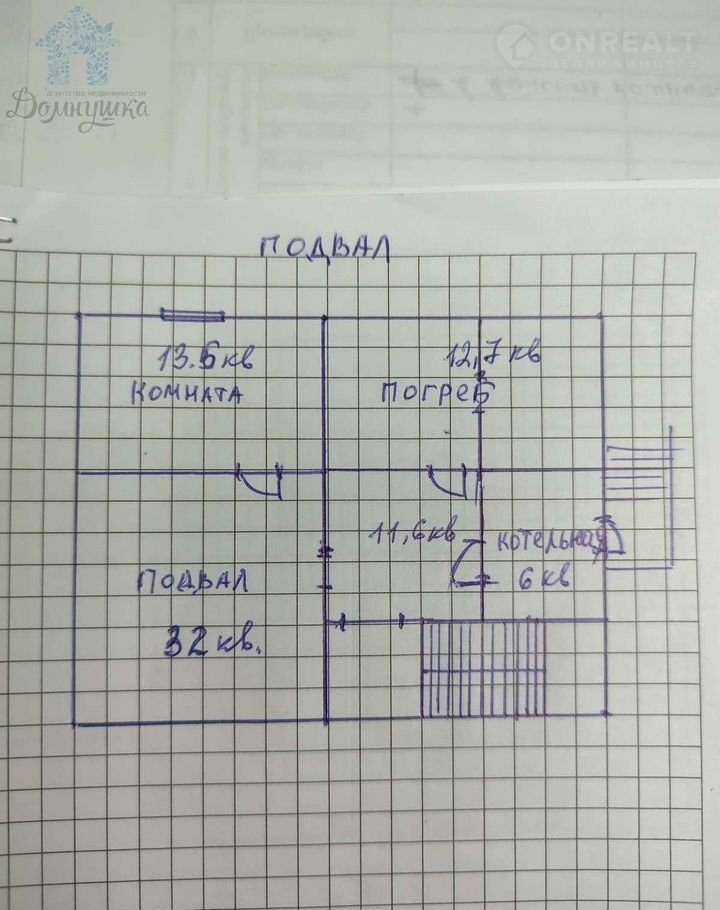 агентство недвижимости
Домнушка
ONREALT
НЕДВИЖИМОСТЬ
ПОДВАЛ
13.5 кв
КОМНАТА
12,7 кв
ПОГРЕБ
11,6 кв
КОТЕЛЬНАЯ
6 кв
ПОДВАЛ
32 кв.